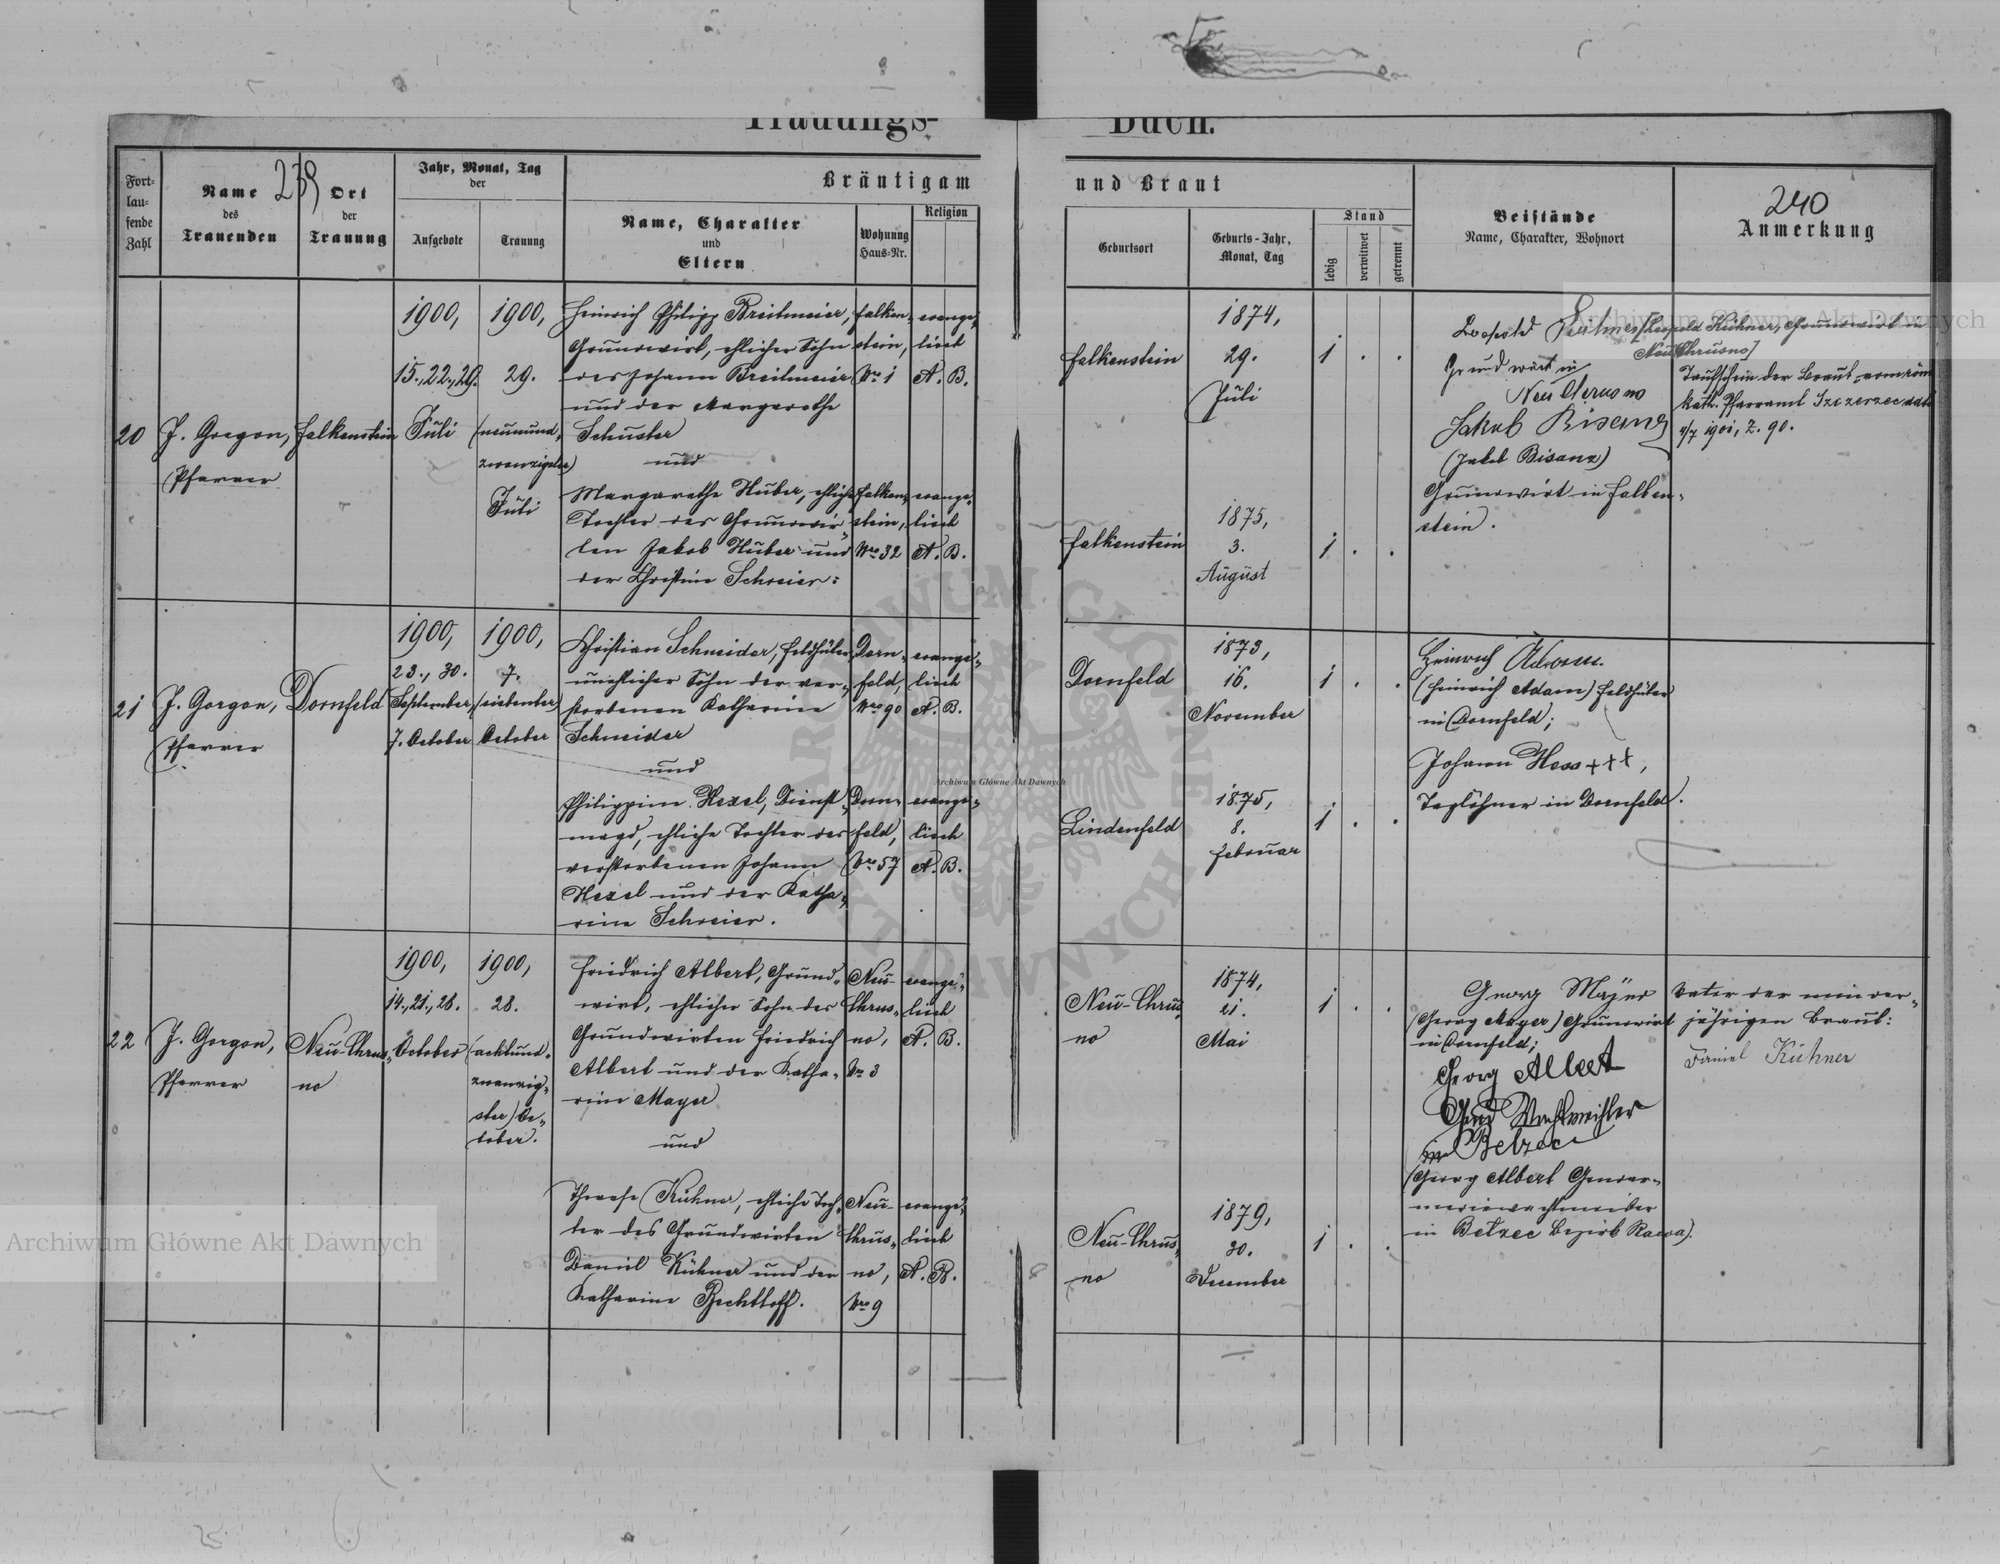 Trauungs-Buch.
239
240
Fort-
lau-
fende
Zahl
Name
des
Trauenden
Ort
der
Trauung
Jahr, Monat, Tag
der
Aufgebote
Trauung
Bräutigam und Braut
Name, Charakter
und
Eltern
Wohnung
Haus-Nr.
Religion
Geburtsort
Geburts-Jahr,
Monat, Tag
Stand
ledig
verwitwet
getrennt
Beistände
Name, Charakter, Wohnort
Anmerkung
20
J. Gorgon,
Pfarrer
Falkenstein
1900,
15., 22., 29.
Juli
1900,
29.
(neunund-
zwanzigster)
Juli
Heinrich Philipp Breitmeier,
Grundwirt, ehlicher Sohn
des Johann Breitmeier
und der Margarethe
Schuster
und
Margarethe Huber, ehliche
Tochter des Grundwir-
ten Jakob Huber und
der Christine Schreier:
Falken-
stein,
Nro 1
evange-
lisch
A. B.
Falken-
stein,
Nro 32
evange-
lisch
A. B.
Falkenstein
1874,
29.
Juli
1 . .
Falkenstein
1875,
3.
August
1 . .
Grundwirt in
Neu Chrusno
Jakob Bisanz
(Jakob Bisanz)
Grundwirt in Falken-
stein.
[Leopold Kühner, Grundwirt in
Neu Chrusno]
Taufschein der Braut vom röm.
kath. Pfarramt Szczerzec
1901, Z. 90.
21
J. Gorgon,
Pfarrer
Dornfeld
1900,
23., 30.
September,
7. October
1900,
7.
(siebenter)
October
Christian Schneider, Feldhüter,
unehlicher Sohn der ver-
storbenen Katharine
Schneider
und
Philippine Hexel, Dienst-
magd, ehliche Tochter des
verstorbenen Johann
Hexel und der Katha-
rine Schreier.
Dorn-
feld,
Nro 90
evange-
lisch
A. B.
Dorn-
feld,
Nro 57
evange-
lisch
A. B.
Dornfeld
1873,
16.
November
1 . .
Lindenfeld
1875,
8.
Februar
1 . .
Heinrich Adam.
(Heinrich Adam) Feldhüter
in Dornfeld;
Johann Hess +++,
Taglöhner in Dornfeld.
22
J. Gorgon,
Pfarrer
Neu-Chrus-
no
1900,
14., 21., 28.
October
1900,
28.
(achtund-
zwanzig-
ster) Oc-
tober.
Friedrich Albert, Grund-
wirt, ehlicher Sohn des
Grundwirten Friedrich
Albert und der Katha-
rine Mayer
und
Therese Kühner, ehliche Toch-
ter des Grundwirten
Daniel Kühner und der
Katharine Bechtloff.
Neu-
Chrus-
no,
Nro 3
evange-
lisch
A. B.
Neu-
Chrus-
no,
Nro 9
evange-
lisch
A. B.
Neu-Chrus-
no
1874,
21.
Mai
1 . .
Neu-Chrus-
no
1879,
30.
December
1 . .
Georg Majer
(Georg Mayer) Grundwirt
in Dornfeld;
Georg Albert
Gend Wachtmeister
in Belzec
(Georg Albert Gendar-
meriewachtmeister
in Bełzec Bezirk Rawa).
Vater der minder-
jährigen Braut:
Daniel Kühner
Archiwum Główne Akt Dawnych
Archiwum Główne Akt Dawnych
Archiwum Główne Akt Dawnych
ARCHIWUM GŁÓWNE AKT DAWNYCH